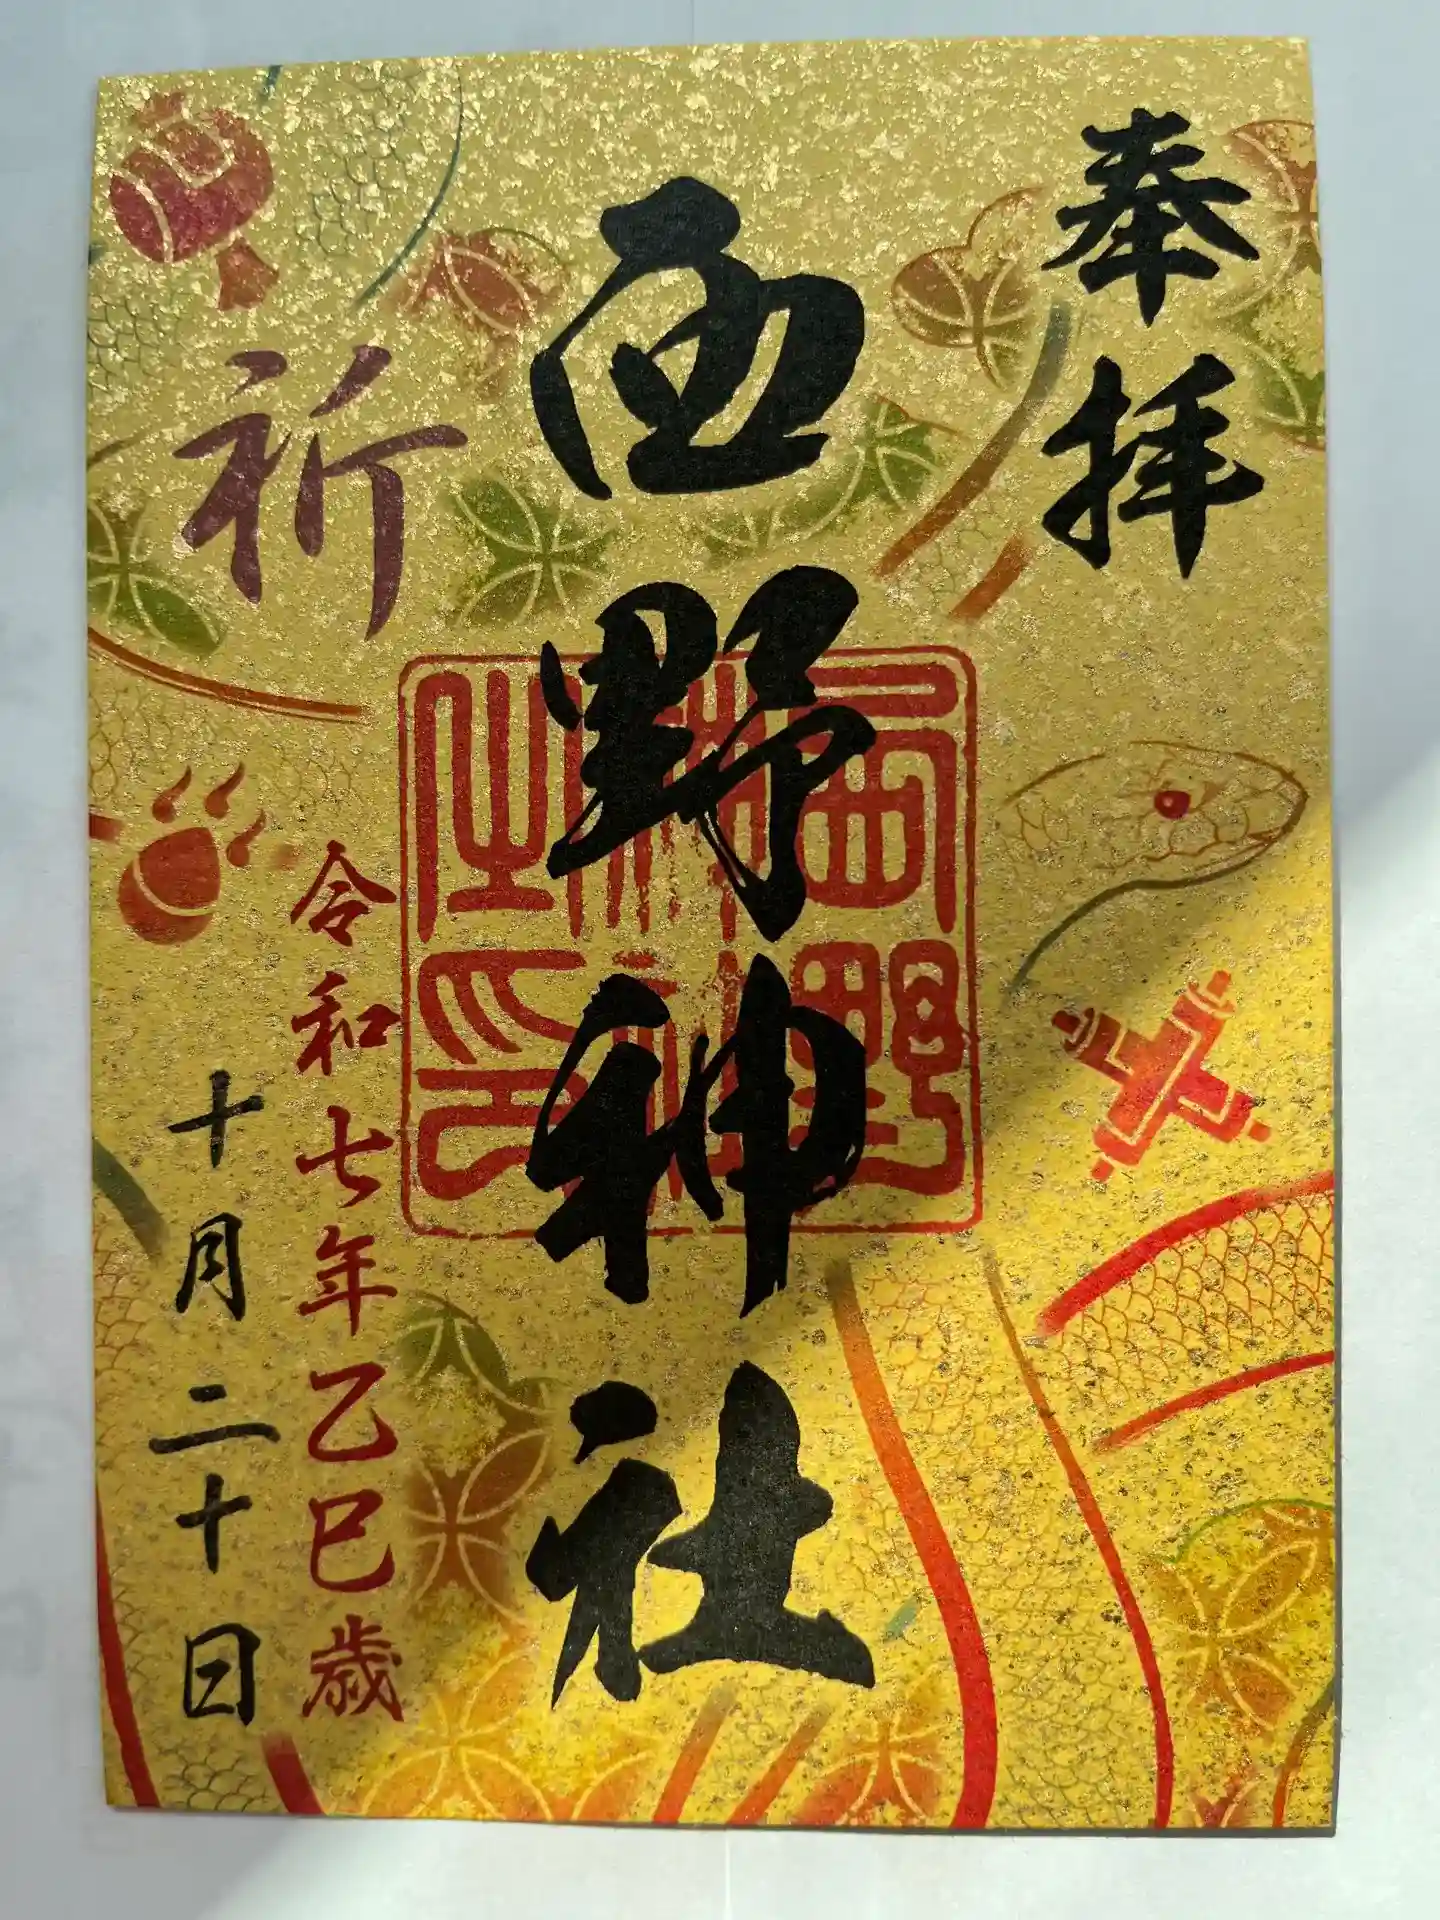 奉拝
西野神社
西野神社之印
祈
令和七年乙巳歳
十月二十日